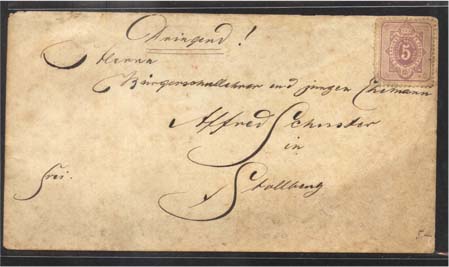 Dringend!
Herrn
Bürgerschullehrer und jungen Ehemann
Alfred Schuster
in
Stollberg
frei.
5
5-